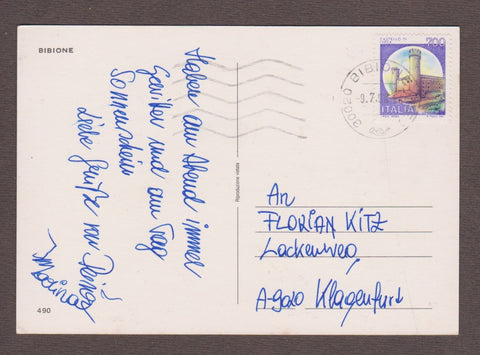 BIBIONE
Haben am Abend immer
Gewitter und am Tag
Sonnenschein
Liebe Grüße von
490
Riproduzione vietata
700
ITALIA
30020 BIBIONE
9.7.
An
FLORIAN KITZ
Lackenweg
A-9020 Klagenfurt